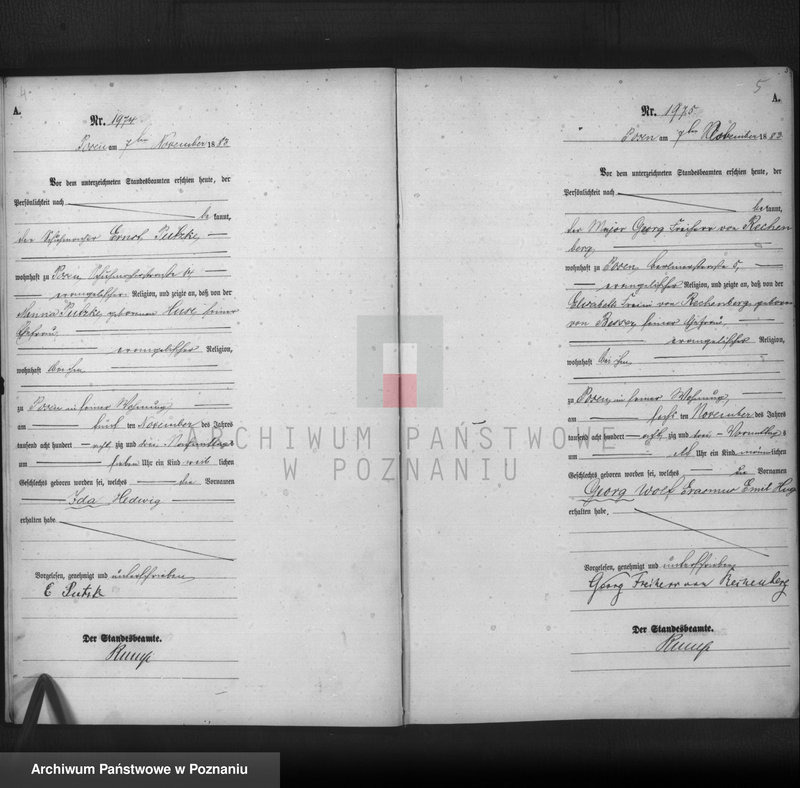 4
A.
Nr. 1974
Posen am 7ten November 1883
Vor dem unterzeichneten Standesbeamten erschien heute, der
Persönlichkeit nach
be kannt,
der Ernst Putzke
wohnhaft zu Posen
evangelischer Religion, und zeigte an, daß von der
Putzke geborenen seiner
Ehefrau
evangelischer Religion,
wohnhaft bei ihm
zu Posen in seiner Wohnung
am fünf ten November des Jahres
tausend acht hundert acht zig und drei Nachmittags
um sieben Uhr ein Kind weib lichen
Geschlechts geboren worden sei, welches die Vornamen
Ida Hedwig
erhalten habe.
Vorgelesen, genehmigt und unterschrieben
E Putzk
Der Standesbeamte.
Rump
5
A.
Nr. 1975
Posen am 7ten November 1883
Vor dem unterzeichneten Standesbeamten erschien heute, der
Persönlichkeit nach
be kannt,
der Major Georg Freiherr von Rechen
berg
wohnhaft zu Posen, Berlinerstraße 5,
evangelischer Religion, und zeigte an, daß von der
Elisabeth von Rechenberg geboren
von seiner Ehefrau,
evangelischer Religion,
wohnhaft bei ihm
zu Posen, in seiner Wohnung,
am sechs ten November des Jahres
tausend acht hundert acht zig und drei Vormittags
um elf Uhr ein Kind männlichen
Geschlechts geboren worden sei, welches die Vornamen
Georg Wolf Erasmus Emil
erhalten habe.
Vorgelesen, genehmigt und unterschrieben
Georg Freiherr von Rechenberg
Der Standesbeamte.
Rump
ARCHIWUM PAŃSTWOWE
W POZNANIU
Archiwum Państwowe w Poznaniu